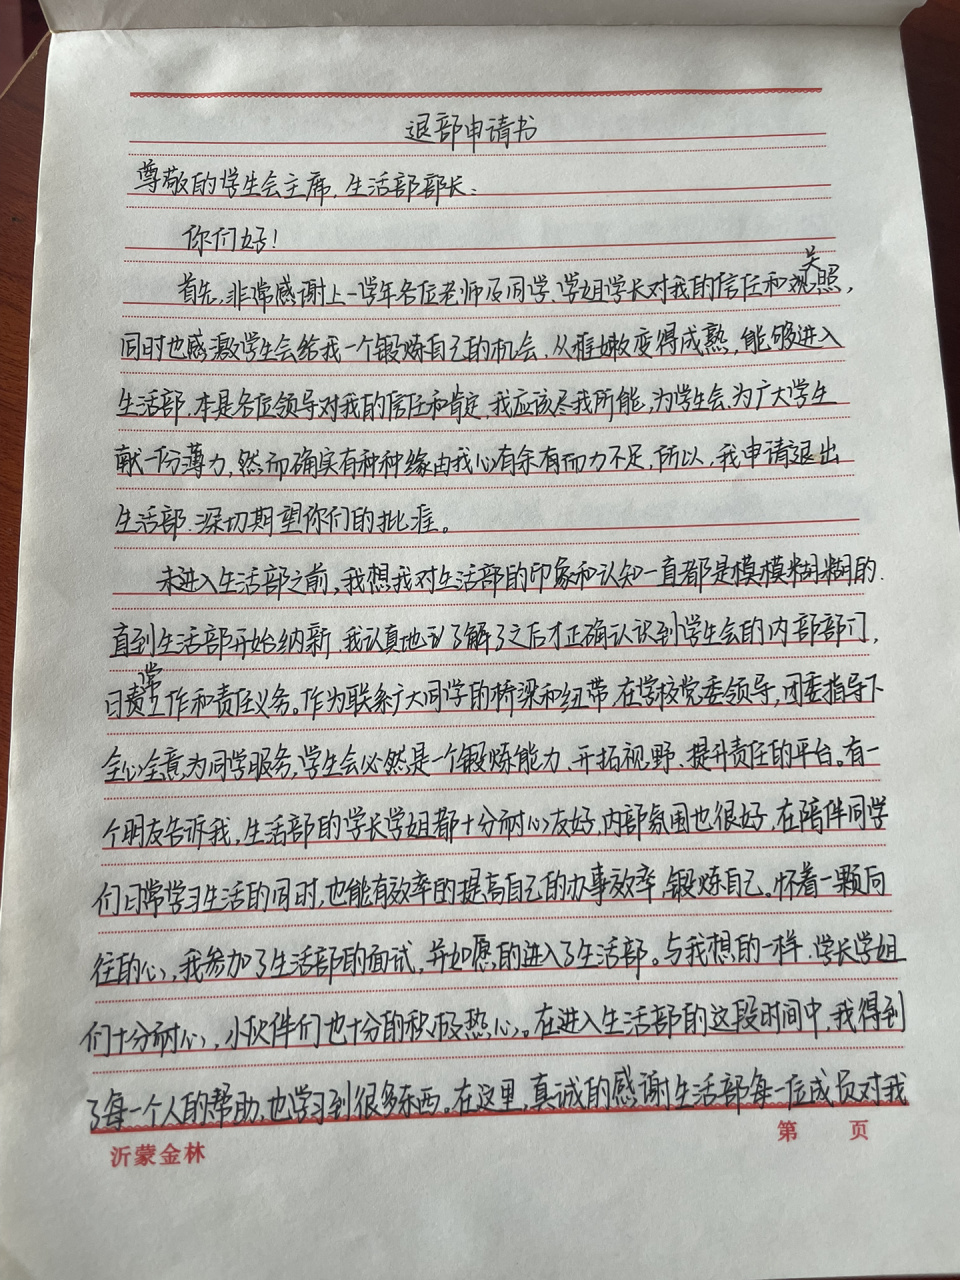 退部申请书
尊敬的学生会主席,生活部部长:
你们好!
关
首先,非常感谢上一学年各位老师及同学、学姐学长对我的信任和观照,
同时也感激学生会给我一个锻炼自己的机会,从稚嫩变得成熟,能够进入
生活部,本是各位领导对我的信任和肯定,我应该尽我所能,为学生会、为广大学生
献一份薄力,然而确实有种种缘由我心有余有而力不足,所以,我申请退出
生活部.深切期望你们的批准。
未进入生活部之前,我想我对生活部的印象和认知一直都是模模糊糊的.
直到生活部开始纳新,我认真地了解了之后才正确认识到学生会的内部部门,
常
日责工作和责任义务。作为联系广大同学的桥梁和纽带,在学校党委领导,团委指导下
全心全意为同学服务,学生会必然是一个锻炼能力、开拓视野、提升责任的平台。有一
个朋友告诉我,生活部的学长学姐都十分耐心友好,内部氛围也很好,在陪伴同学
们日常学习生活的同时,也能有效率的提高自己的办事效率,锻炼自己。怀着一颗向
往的心,我参加了生活部的面试,并如愿的进入了生活部。与我想的一样,学长学姐
们十分耐心,小伙伴们也十分的积极热心。在进入生活部的这段时间中,我得到
了每一个人的帮助,也学习到很多东西。在这里,真诚的感谢生活部每一位成员对我
沂蒙金林
第 页